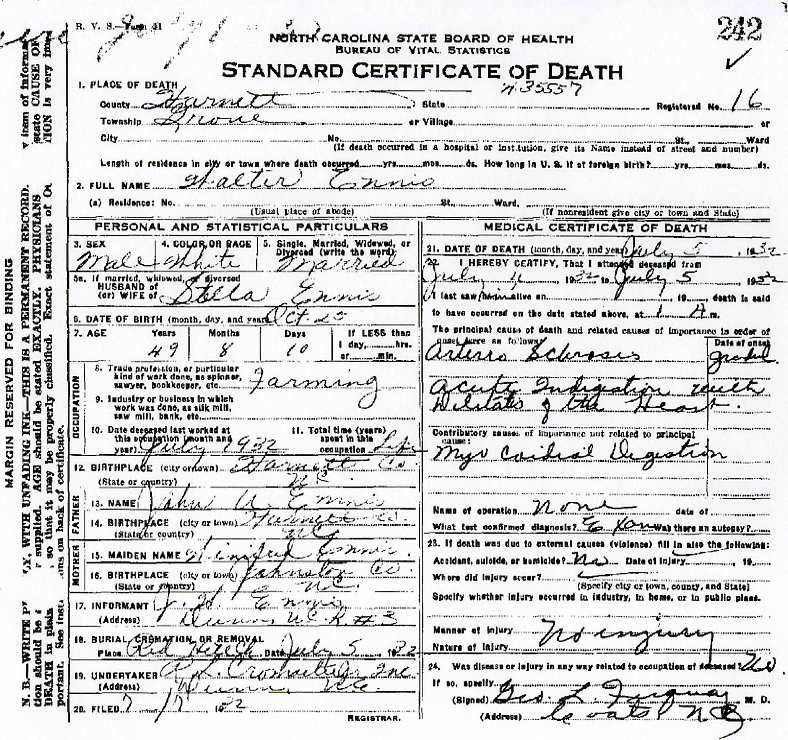 R. V. S.—Form 41
242
NORTH CAROLINA STATE BOARD OF HEALTH
BUREAU OF VITAL STATISTICS
STANDARD CERTIFICATE OF DEATH
1. PLACE OF DEATH
County Harnett State Registered No. 16
Township or Village or
City No. St., Ward
(If death occurred in a hospital or institution, give its Name instead of street and number)
Length of residence in city or town where death occurred yrs. mos. ds. How long in U. S. if of foreign birth? yrs. mos. ds.
2. FULL NAME Walter Ennis
(a) Residence: No. St., Ward,
(Usual place of abode) (If nonresident give city or town and State)
PERSONAL AND STATISTICAL PARTICULARS
3. SEX 4. COLOR OR RACE 5. Single, Married, Widowed, or
Divorced (write the word)
Male White Married
5a. If married, widowed, or divorced
HUSBAND OF
(or) WIFE OF Stella Ennis
6. DATE OF BIRTH (month, day, and year) Oct. 25
7. AGE Years Months Days If LESS than
1 day, hrs.
49 8 10 or min.
OCCUPATION
8. Trade profession, or particular
kind of work done, as spinner,
sawyer, bookkeeper, etc. Farming
9. Industry or business in which
work was done, as silk mill,
saw mill, bank, etc.
10. Date deceased last worked at
this occupation (month and
year) July 1932
11. Total time (years)
spent in this
occupation
12. BIRTHPLACE (city or town) Harnett Co
(State or country) N.C.
FATHER
13. NAME John Ennis
14. BIRTHPLACE (city or town) Harnett Co.
(State or country) N.C.
MOTHER
15. MAIDEN NAME Winifred Ennis
16. BIRTHPLACE (city or town) Johnston Co
(State or country) N.C.
17. INFORMANT Ennis
(Address) Dunn, N.C. R #3
18. BURIAL CREMATION OR REMOVAL
Place Date July 5 1932
19. UNDERTAKER Inc
(Address) Dunn, N.C.
20. FILED 7/7 1932
REGISTRAR.
MEDICAL CERTIFICATE OF DEATH
21. DATE OF DEATH (month, day, and year) July 5, 1932
22. I HEREBY CERTIFY, That I attended deceased from
July 4 1932 to July 5 1932
I last saw him alive on 19 death is said
to have occurred on the date stated above, at 1 A m.
The principal cause of death and related causes of importance in order of
onset were as follows: Date of onset
Arterio Sclrosis
Acute Indigestion with
of the Heart.
Contributory causes of importance not related to principal
cause:
Name of operation None date of
What test confirmed diagnosis? Was there an autopsy?
23. If death was due to external causes (violence) fill in also the following:
Accident, suicide, or homicide? No Date of injury , 19
Where did injury occur?
(Specify city or town, county, and State)
Specify whether injury occurred in industry, in home, or in public place.
Manner of injury No injury
Nature of injury
24. Was disease or injury in any way related to occupation of deceased? No
If so, specify
(Signed) Geo. L. M. D.
(Address) Coats N.C.
MARGIN RESERVED FOR BINDING